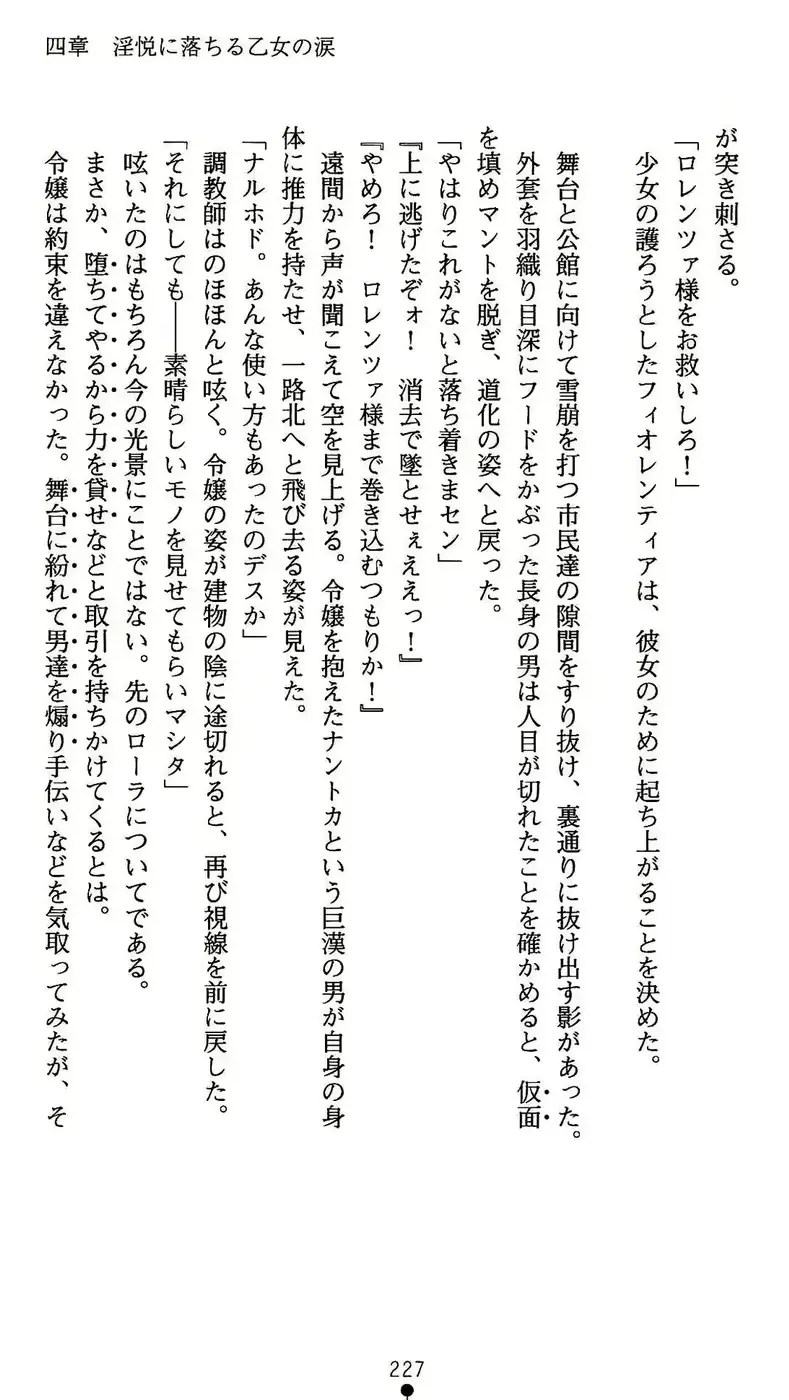 四章　淫悦に落ちる乙女の涙
が突き刺さる。
「ロレンツァ様をお救いしろ！」
少女の護ろうとしたフィオレンティアは、彼女のために起ち上がることを決めた。
舞台と公館に向けて雪崩を打つ市民達の隙間をすり抜け、裏通りに抜け出す影があった。
外套を羽織り目深にフードをかぶった長身の男は人目が切れたことを確かめると、仮面
を填めマントを脱ぎ、道化の姿へと戻った。
「やはりこれがないと落ち着きまセン」
『上に逃げたぞォ！　消去で墜とせぇええっ！』
『やめろ！　ロレンツァ様まで巻き込むつもりか！』
遠間から声が聞こえて空を見上げる。令嬢を抱えたナントカという巨漢の男が自身の身
体に推力を持たせ、一路北へと飛び去る姿が見えた。
「ナルホド。あんな使い方もあったのデスか」
調教師はのほほんと呟く。令嬢の姿が建物の陰に途切れると、再び視線を前に戻した。
「それにしても――素晴らしいモノを見せてもらいマシタ」
呟いたのはもちろん今の光景にことではない。先のローラについてである。
まさか、堕ちてやるから力を貸せなどと取引を持ちかけてくるとは。
令嬢は約束を違えなかった。舞台に紛れて男達を煽り手伝いなどを気取ってみたが、そ
227